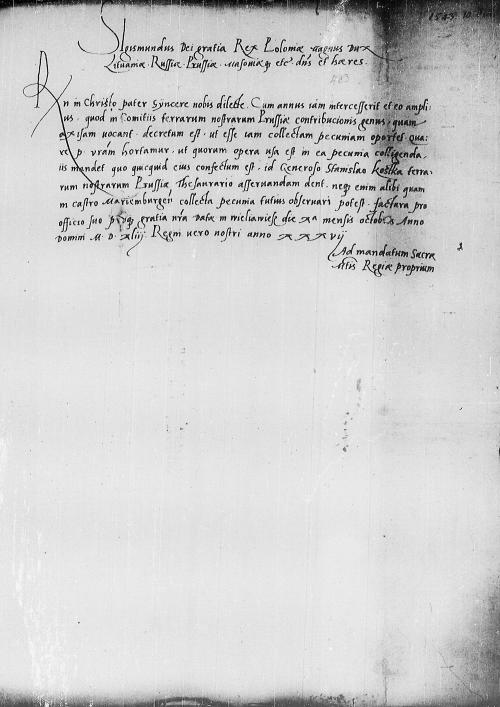 Sigismundus Dei gratia Rex Poloniæ magnus Dux
Lituaniæ Russiæ Prussiæ Masoviæq; etc dns et hæres.
Rn in Christo pater syncere nobis dilecte. Cum annus iam intercesserit et eo ampli:
us. quod in Comitiis terrarum nostrarum Prussiæ contribucionis genus. quam
exisam vocant. decretum est. ut esse iam collectam pecuniam oportet qua:
re p. vram hortamur. ut quorum opera usa est in ea pecunia colligenda.
iis mandet quo quicquid eius confectum est. id Generoso Stanislao Kostka terra:
rum nostrarum Prussiæ Thesaurario asservandam dent. neq; enim alibi quam
in castro Mariemburgen collecta pecunia tutius observari potest. factura pro
officio suo gratia nra Data in wieliczie die xxa mensis octobris Anno
Domini M. D. xliij. Regni vero nostri anno xxxvij
Ad mandatum Sacræ
Mtis Regiæ proprium